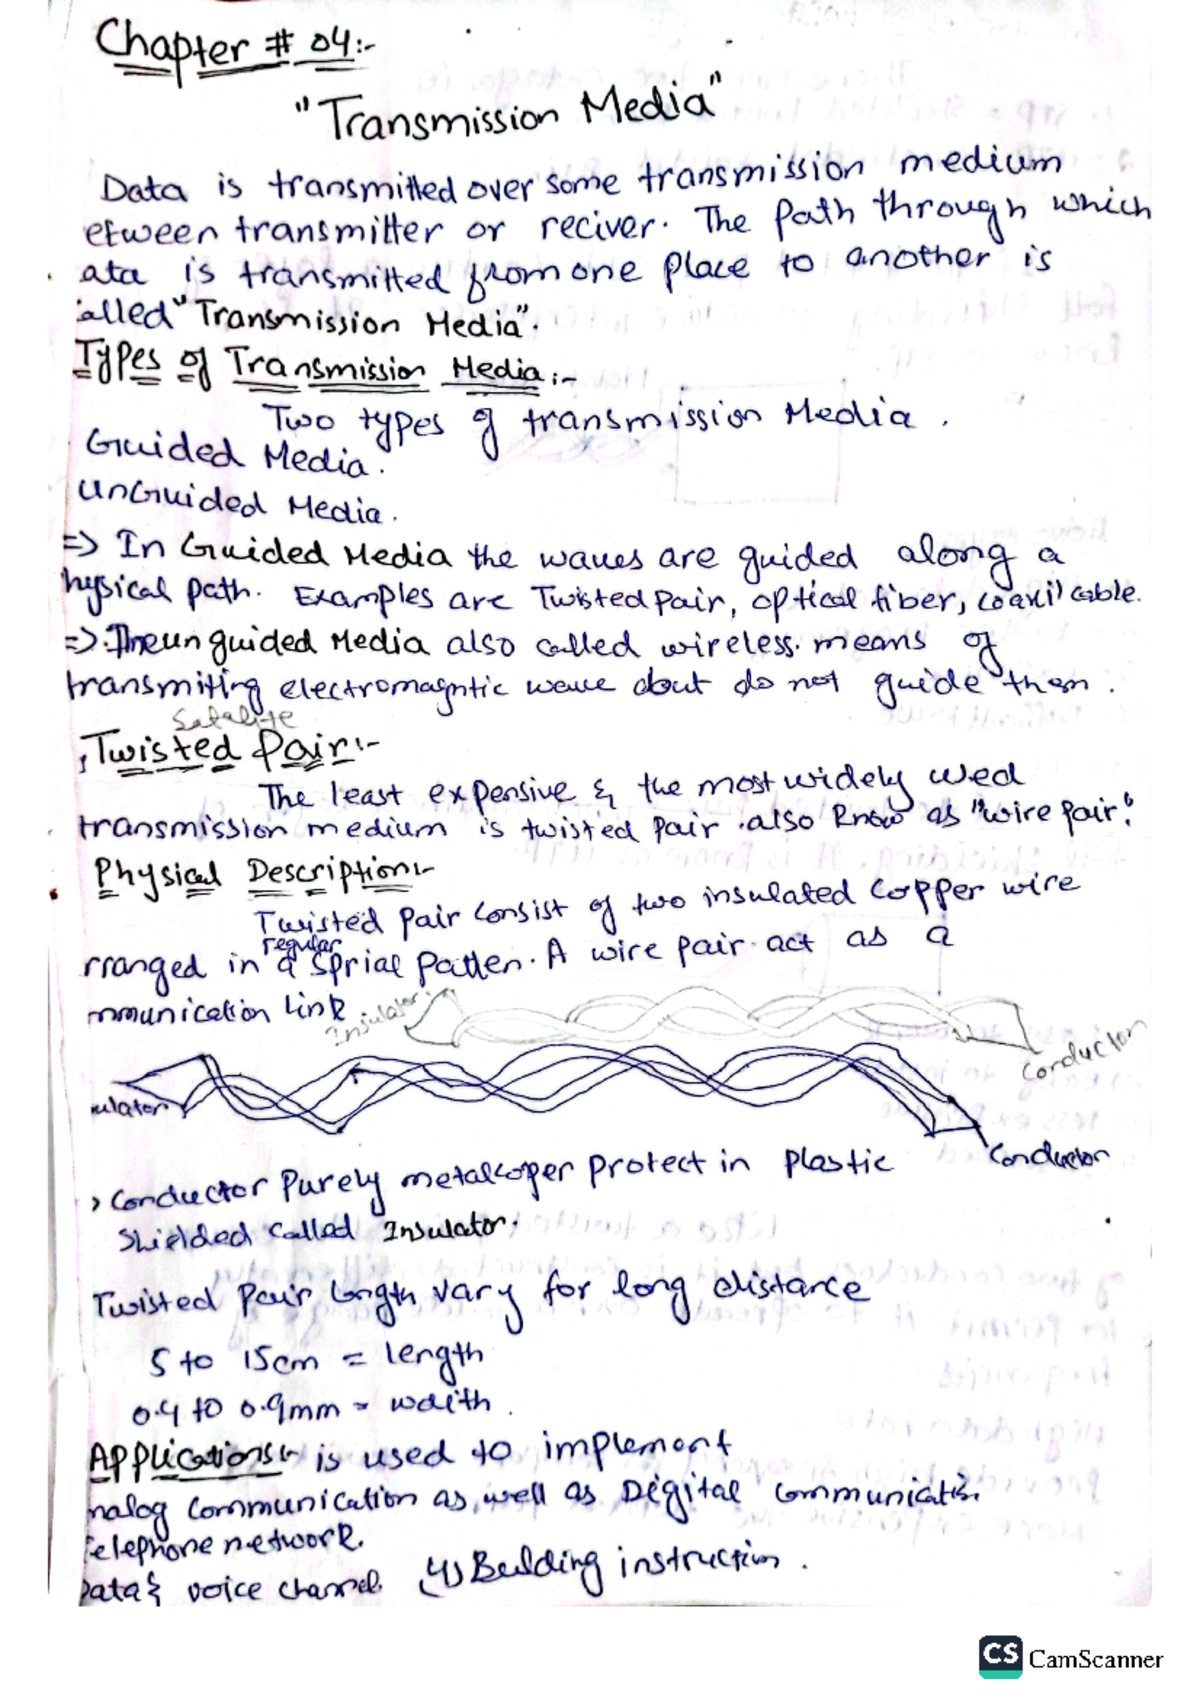 Chapter # 04:-
"Transmission Media"
Data is transmitted over some transmission medium
etween transmitter or reciver. The path through which
ata is transmitted from one place to another is
alled "Transmission Media".
Types of Transmission Media:-
Two types of transmission Media.
Guided Media.
UnGuided Media.
=> In Guided Media the waves are guided along a
hysical path. Examples are Twisted Pair, optical fiber, coaxil cable.
=> The unguided Media also called wireless. means of
transmiting electromagntic wave but do not guide them.
Satalite
Twisted Pair:-
The least expensive & the most widely used
transmission medium is twisted pair. also know as "wire pair".
Physical Description:-
Twisted pair consist of two insulated copper wire
regular
rranged in a sprial patten. A wire pair act as a
mmunication link.
Insulator
Conductor
ulator
Conductor
Conductor Purely metal coper protect in plastic
shielded called Insulator.
Twisted Pair length vary for long distance
5 to 15cm = length
0.4 to 0.9mm = width.
Applications:- is used to implement
nalog communication as well as Digital communicatin.
Telephone network.
Data & voice channel. (4) Building instruction.
CS CamScanner